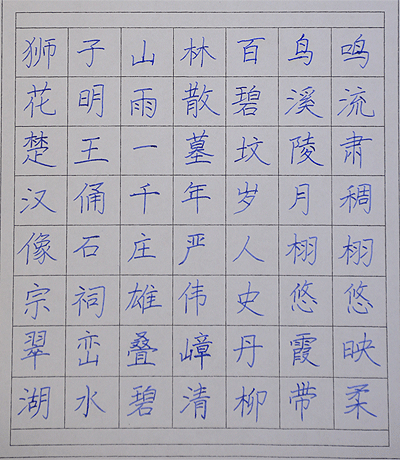 狮子山林百鸟鸣
花明雨散碧溪流
楚王一墓坟陵肃
汉俑千年岁月稠
像石庄严人栩栩
宗祠雄伟史悠悠
翠峦叠嶂丹霞映
湖水碧清柳带柔